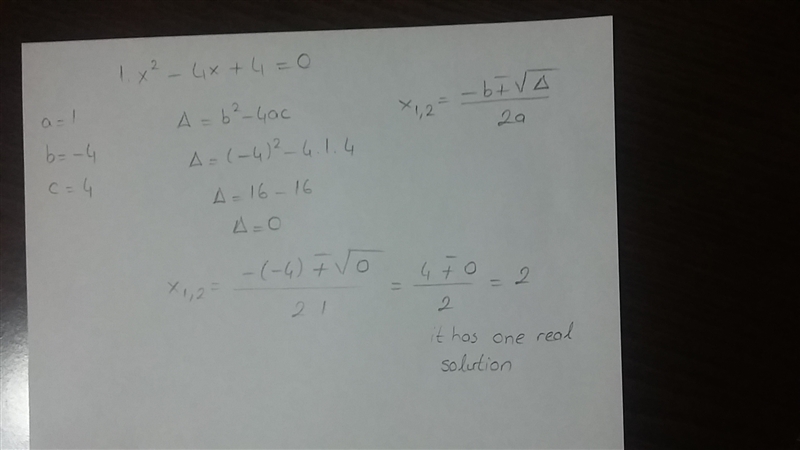 1.x² - 4x + 4 = 0
a = 1
b = -4
c = 4
Δ = b² - 4ac
Δ = (-4)² - 4.1.4
Δ = 16 - 16
Δ = 0
x₁,₂ = (-b ∓ √Δ) / 2a
x₁,₂ = (-(-4) ∓ √0) / 2 1 = (4 ∓ 0) / 2 = 2
it has one real
solution